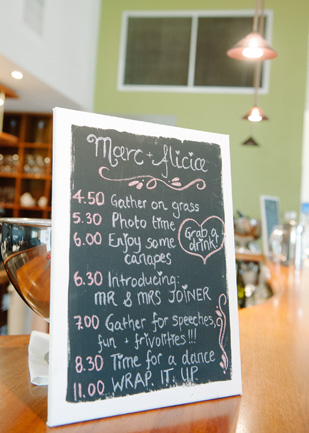 Marc + Alicia
4.50 Gather on grass
5.30 Photo time
6.00 Enjoy some
canapes
Grab a
drink!
6.30 Introducing:
MR & MRS JOINER
7.00 Gather for speeches,
fun + frivolities!!!
8.30 Time for a dance
11.00 WRAP IT UP